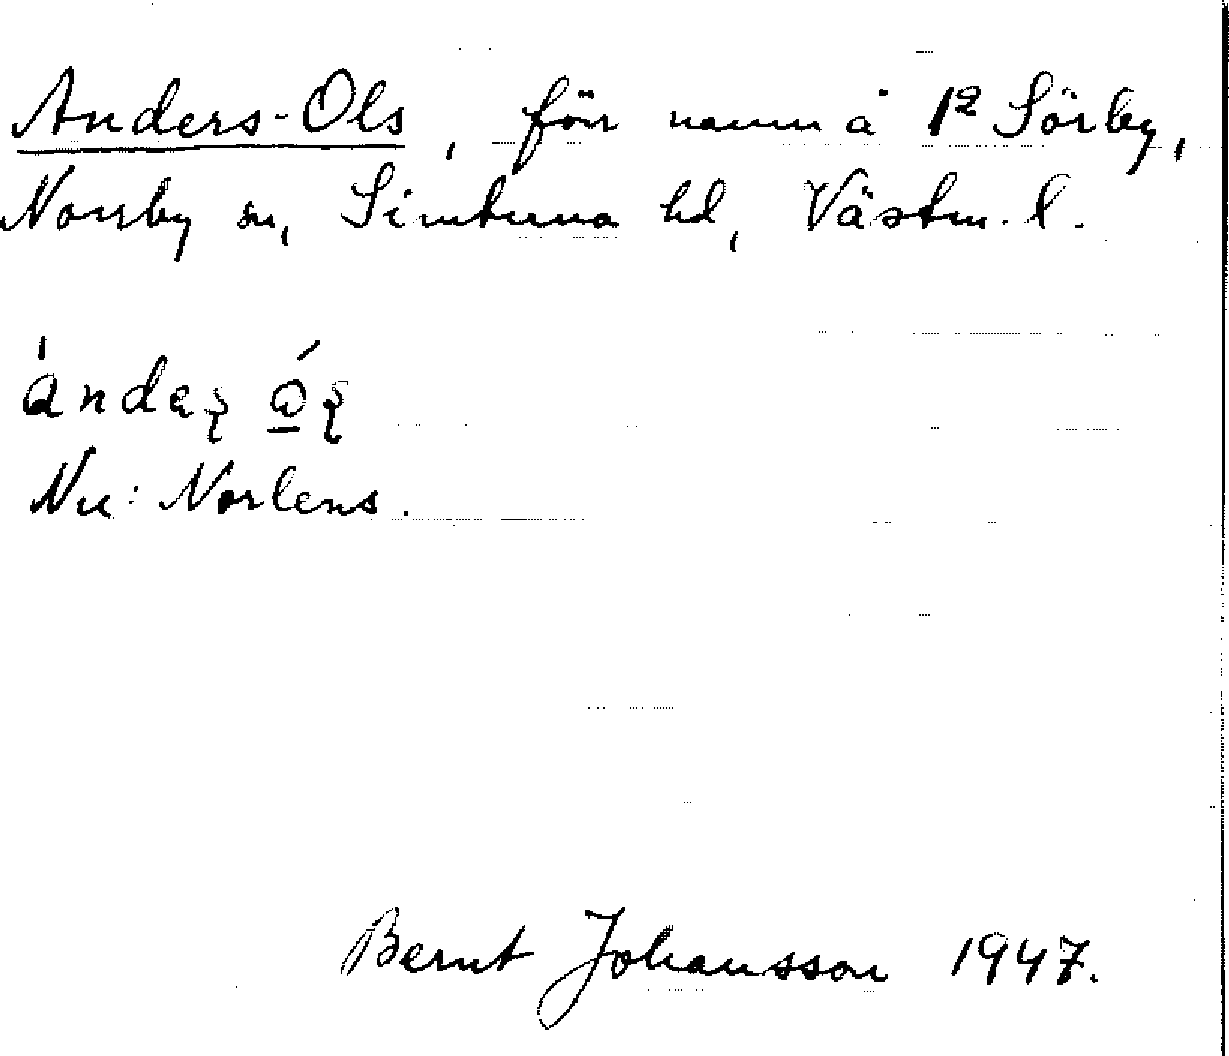 Anders-Ols, förr namn å 1² Sörby,
Norrby sn, Simtuna hd, Västm. l.
Nu: Norlens.
Bernt Johansson 1947.